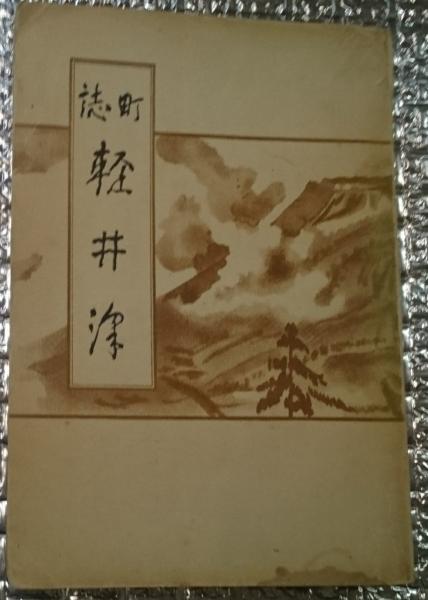 町誌
軽井澤